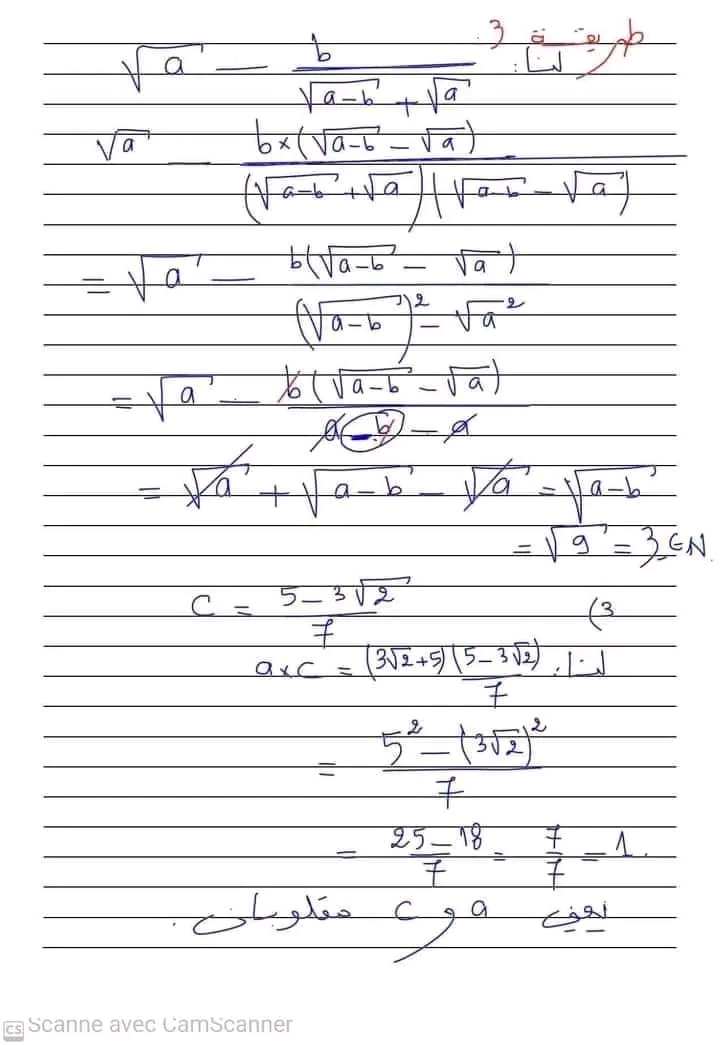 طريقة 3.
لنا: √a − b / (√(a−b) + √a)
√a − b×(√(a−b) − √a) / (√(a−b) + √a)(√(a−b) − √a)
= √a − b(√(a−b) − √a) / ((√(a−b))² − √a²)
= √a − b(√(a−b) − √a) / (a − b − a)
= √a + √(a−b) − √a = √(a−b)
= √9 = 3 ∈ N.
3) C = (5 − 3√2) / 7
لنا: a×C = (3√2+5)(5−3√2) / 7
= (5² − (3√2)²) / 7
= (25 − 18) / 7 = 7/7 = 1.
يعني a و c مقلوبان.
CS Scanne avec CamScanner